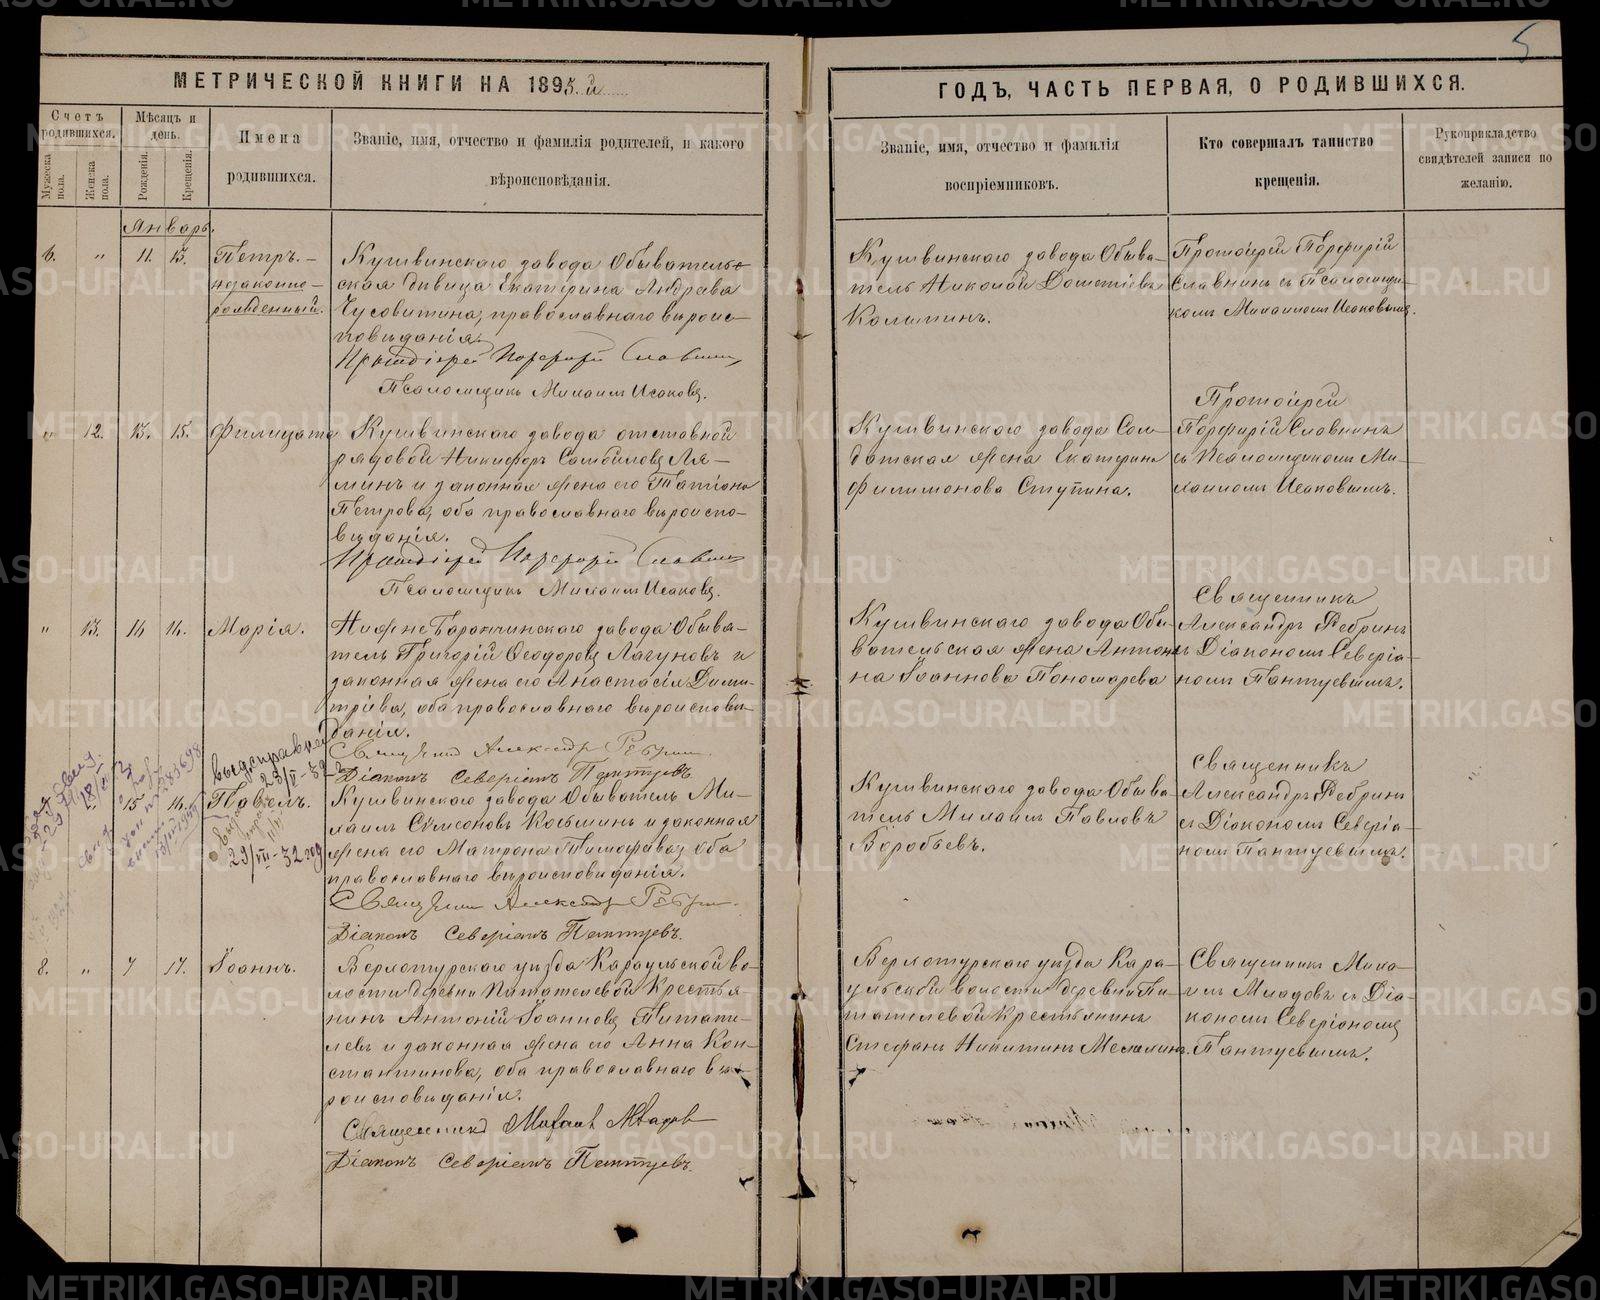 5
МЕТРИЧЕСКОЙ КНИГИ НА 1895.й
Счетъ родившихся.
Мужеска пола.
Женска пола.
Мѣсяцъ и день.
Рожденія.
Крещенія.
Имена родившихся.
Званіе, имя, отчество и фамилія родителей, и какого
вѣроисповѣданія.
ГОДЪ, ЧАСТЬ ПЕРВАЯ, О РОДИВШИХСЯ.
Званіе, имя, отчество и фамилія
воспріемниковъ.
Кто совершалъ таинство
крещенія.
Рукоприкладство
свидѣтелей записи по
желанію.
Январь.
6. " 11. 13. Петръ. –
незаконно-
рожденный.
Кушвинскаго завода Обыватель-
ская дѣвица Екатерина Андреева
Чусовитина, православнаго вѣроис-
повѣданія.
Протоіерей Порфирій Славнинъ
Псаломщикъ Михаилъ Исаковъ.
Кушвинскаго завода Обыва-
тель Николай
Калининъ.
Протоіерей Порфирій
Славнинъ съ Псаломщи-
комъ Михаиломъ Исаковымъ.
" 12. 13. 15. Филицата
Кушвинскаго завода отставной
рядовой Никифоръ Самойловъ Ля-
минъ и законная жена его Татіана
Петрова, оба православнаго вѣроиспо-
вѣданія.
Протоіерей Порфирій Славнинъ
Псаломщикъ Михаилъ Исаковъ.
Кушвинскаго завода Сол-
датская жена Екатерина
Филимонова Ступина.
Протоіерей
Порфирій Славнинъ
съ Псаломщикомъ Ми-
хаиломъ Исаковымъ.
" 13. 14 14. Марія.
Нижне Баранчинскаго завода Обыва-
тель Григорій Ѳеодоровъ Лагуновъ и
законная жена его Анастасія Дими-
тріева, оба православнаго вѣроисповѣ-
данія.
Священникъ Александръ Ребринъ
Діаконъ Северіанъ Пантуевъ.
Кушвинскаго завода Обы-
вательская жена Антони-
на Іоаннова Пономарева
Священникъ
Александръ Ребринъ
съ Діакономъ Северіа-
номъ Пантуевымъ.
15 16. Павелъ.
29/VII – 32 год
Кушвинскаго завода Обыватель Ми-
хаилъ Сѵмеоновъ Кокшинъ и законная
жена его Матрона Тимофѣева, оба
православнаго вѣроисповѣданія.
Священникъ Александръ Ребринъ.
Діаконъ Северіанъ Пантуевъ.
Кушвинскаго завода Обыва-
тель Михаилъ Павловъ
Воробьевъ.
Священникъ
Александръ Ребринъ
съ Діакономъ Северіа-
номъ Пантуевымъ.
8. " 7 17. Іоаннъ.
Верхотурскаго уѣзда Караульской во-
лости деревни Питателевой Крестья-
нинъ Антоній Іоанновъ Питате-
левъ и законная жена его Анна Кон-
стантинова, оба православнаго вѣ-
роисповѣданія.
Священникъ Михаилъ Младовъ
Діаконъ Северіанъ Пантуевъ.
Верхотурскаго уѣзда Кара-
ульской волости деревни Пи-
тателевой Крестьянинъ
Стефанъ Никитинъ Мехалинъ.
Священникъ Миха-
илъ Младовъ съ Діа-
кономъ Северіаномъ
Пантуевымъ.
METRIKI.GASO-URAL.RU